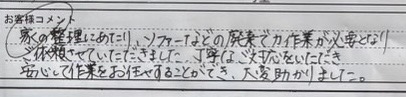 お客様コメント
家の整理にあたり、ソファーなどの廃棄で力作業が必要となり
ご依頼させていただきました。丁寧なご対応をいただき
安心して作業をお任せすることができ、大変助かりました。